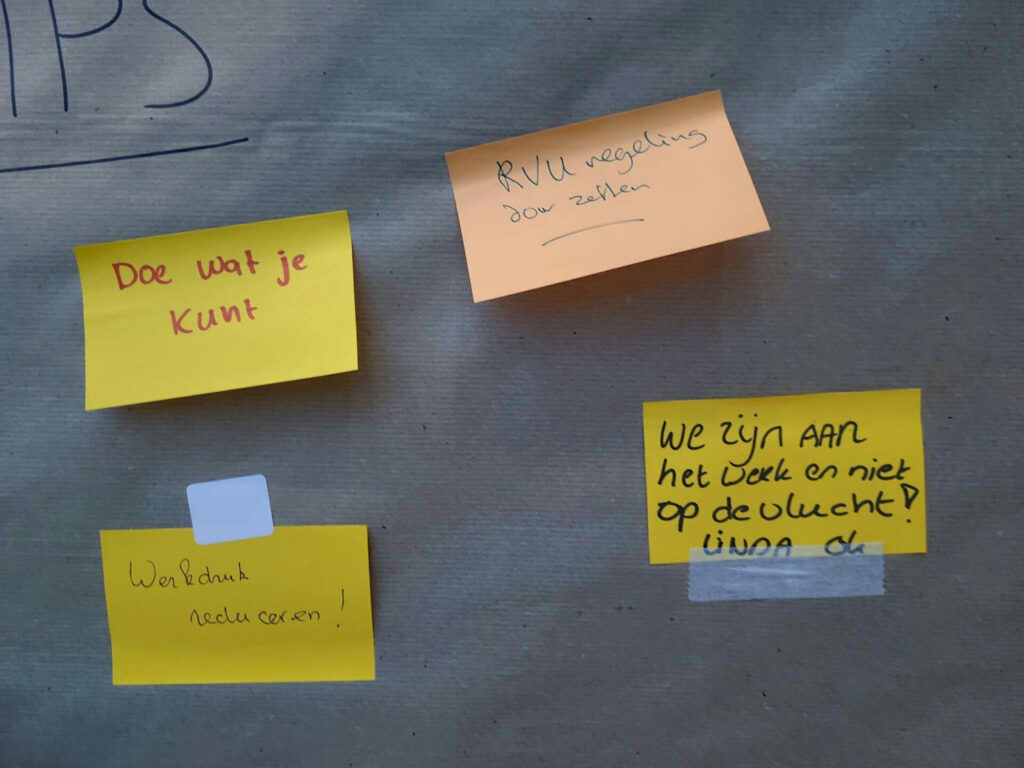 IPS
RVU regeling
door zetten
Doe wat je
kunt
WE zijn AAN
het werk en niet
op de vlucht!
LINDA OK
Werkdruk
reduceren!